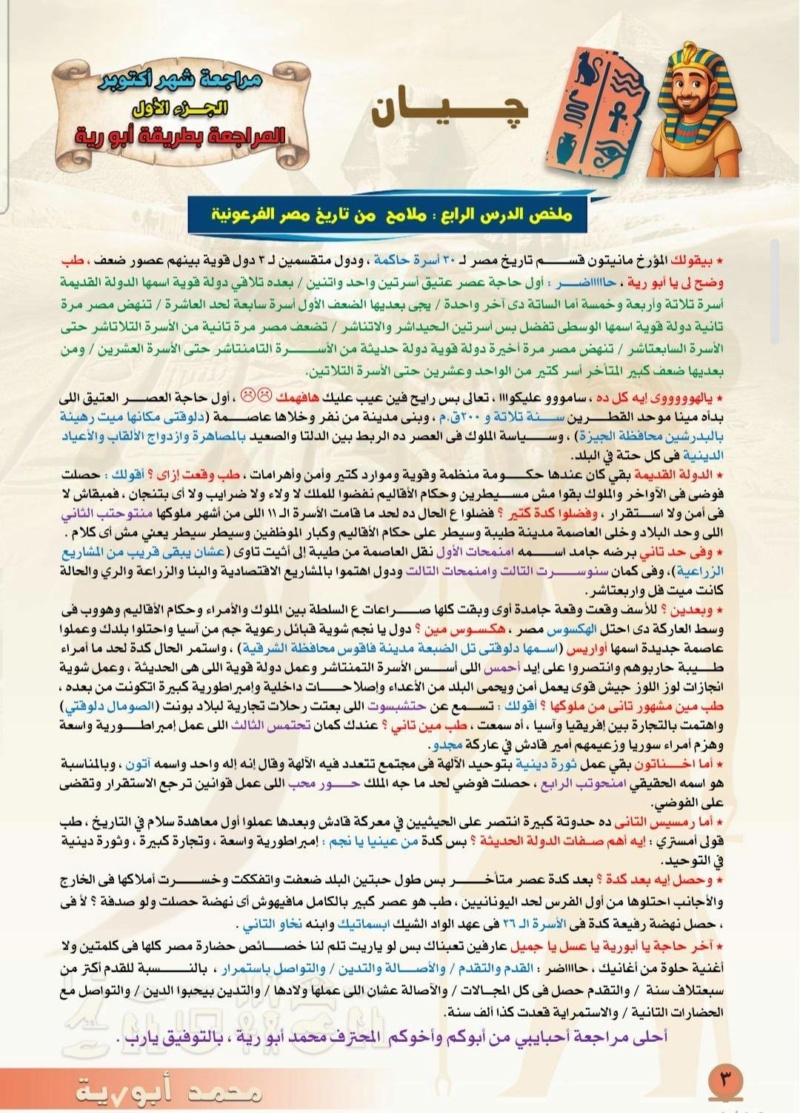 مراجعة شهر أكتوبر
الجزء الأول
المراجعة بطريقة أبو رية
چيان
ملخص الدرس الرابع : ملامح من تاريخ مصر الفرعونية
★ بيقولك المؤرخ مانيتون قسم تاريخ مصر لـ ٣٠ أسرة حاكمة ، ودول متقسمين لـ ٣ دول قوية بينهم عصور ضعف ، طب
وضح لى يا أبو رية ، حاااااضر : أول حاجة عصر عتيق أسرتين واحد واتنين / بعده تلاقي دولة قوية اسمها الدولة القديمة
أسرة تلاتة وأربعة وخمسة أما الساتة دى آخر واحدة / يجى بعديها الضعف الأول أسرة سابعة لحد العاشرة / تنهض مصر مرة
تانية دولة قوية اسمها الوسطى تفضل بس أسرتين الحيداشر والاتناشر / تضعف مصر مرة تانية من الأسرة التلاتاشر حتى
الأسرة السابعتاشر / تنهض مصر مرة أخيرة دولة قوية دولة حديثة من الأسرة التامنتاشر حتى الأسرة العشرين / ومن
بعديها ضعف كبير المتأخر أسر كتير من الواحد وعشرين حتى الأسرة التلاتين.
★ يالهووووى إيه كل ده ، ساموووو عليكوااا ، تعالى بس رايح فين عيب عليك هافهمك ☹☹ ، أول حاجة العصر العتيق اللى
بدأه مينا موحد القطرين سنة تلاتة و ٢٠٠ق.م ، وبنى مدينة من نفر وخلاها عاصمة (دلوقتى مكانها ميت رهينة
بالبدرشين محافظة الجيزة) ، وسياسة الملوك فى العصر ده الربط بين الدلتا والصعيد بالمصاهرة وازدواج الألقاب والأعياد
الدينية فى كل حتة في البلد.
★ الدولة القديمة بقي كان عندها حكومة منظمة وقوية وموارد كتير وأمن وأهرامات ، طب وقعت إزاى ؟ أقولك : حصلت
فوضى فى الآواخر والملوك بقوا مش مسيطرين وحكام الأقاليم نفضوا للملك لا ولاء ولا ضرايب ولا أى بتنجان ، فمبقاش لا
فى أمن ولا استقرار ، وفضلوا كدة كتير ؟ فضلوا ع الحال ده لحد ما قامت الأسرة الـ ١١ اللى من أشهر ملوكها منتوحتب الثاني
اللى وحد البلاد وخلى العاصمة مدينة طيبة وسيطر على حكام الأقاليم وكبار الموظفين وسيطر سيطر يعني مش أى كلام .
★ وفى حد تاني برضه جامد اسمه امنمحات الأول نقل العاصمة من طيبة إلى أثيت تاوى (عشان يبقى قريب من المشاريع
الزراعية)، وفى كمان سنوسرت التالت وامنمحات التالت ودول اهتموا بالمشاريع الاقتصادية والبنا والزراعة والري والحالة
كانت ميت فل واربعتاشر.
★ وبعدين ؟ للأسف وقعت وقعة جامدة أوى وبقت كلها صراعات ع السلطة بين الملوك والأمراء وحكام الأقاليم وهووب فى
وسط العاركة دى احتل الهكسوس مصر ، هكسوس مين ؟ دول يا نجم شوية قبائل رعوية جم من آسيا واحتلوا بلدك وعملوا
عاصمة جديدة اسمها أواريس (اسمها دلوقتى تل الضبعة مدينة فاقوس محافظة الشرقية) ، واستمر الحال كدة لحد ما أمراء
طيبة حاربوهم وانتصروا على إيد أحمس اللى أسس الأسرة التمنتاشر وعمل دولة قوية اللى هى الحديثة ، وعمل شوية
انجازات لوز اللوز جيش قوى يعمل أمن ويحمى البلد من الأعداء وإصلاحات داخلية وإمبراطورية كبيرة اتكونت من بعده ،
طب مين مشهور تانى من ملوكها ؟ أقولك : تسمع عن حتشبسوت اللى بعتت رحلات تجارية لبلاد بونت (الصومال دلوقتي)
واهتمت بالتجارة بين إفريقيا وآسيا ، أه سمعت ، طب مين تاني ؟ عندك كمان تحتمس الثالث اللى عمل إمبراطورية واسعة
وهزم أمراء سوريا وزعيمهم أمير قادش في عاركة مجدو.
★ أما اخناتون بقي عمل ثورة دينية بتوحيد الآلهة فى مجتمع تتعدد فيه الآلهة وقال إنه إله واحد واسمه آتون ، وبالمناسبة
هو اسمه الحقيقي امنحوتب الرابع ، حصلت فوضي لحد ما جه الملك حور محب اللى عمل قوانين ترجع الاستقرار وتقضى
على الفوضي.
★ أما رمسيس التانى ده حدوتة كبيرة انتصر على الحيثيين في معركة قادش وبعدها عملوا أول معاهدة سلام في التاريخ ، طب
قولى أمستري : إيه أهم صفات الدولة الحديثة ؟ بس كدة من عينيا يا نجم : إمبراطورية واسعة ، وتجارة كبيرة ، وثورة دينية
في التوحيد.
★ وحصل إيه بعد كدة ؟ بعد كدة عصر متأخر بس طول حبتين البلد ضعفت واتفككت وخسرت أملاكها فى الخارج
والأجانب احتلوها من أول الفرس لحد اليونانيين ، طب هو عصر كبير بالكامل مافيهوش أى نهضة حصلت ولو صدفة ؟ لأ فى
، حصل نهضة رفيعة كدة فى الأسرة الـ ٢٦ فى عهد الواد الشيك ابسماتيك وابنه نخاو التاني .
★ آخر حاجة يا أبورية يا عسل يا جميل عارفين تعبناك بس لو ياريت تلم لنا خصائص حضارة مصر كلها فى كلمتين ولا
أغنية حلوة من أغانيك ، حاااااضر : القدم والتقدم / والأصالة والتدين / والتواصل باستمرار ، بالنسبة للقدم أكتر من
سبعتلاف سنة / والتقدم حصل فى كل المجالات / والأصالة عشان اللى عملها ولادها / والتدين بيحبوا الدين / والتواصل مع
الحضارات التانية / والاستمراية قعدت كذا ألف سنة.
أحلى مراجعة أحبايبي من أبوكم وأخوكم المحترف محمد أبو رية ، بالتوفيق يارب .
محمد أبو رية
٣